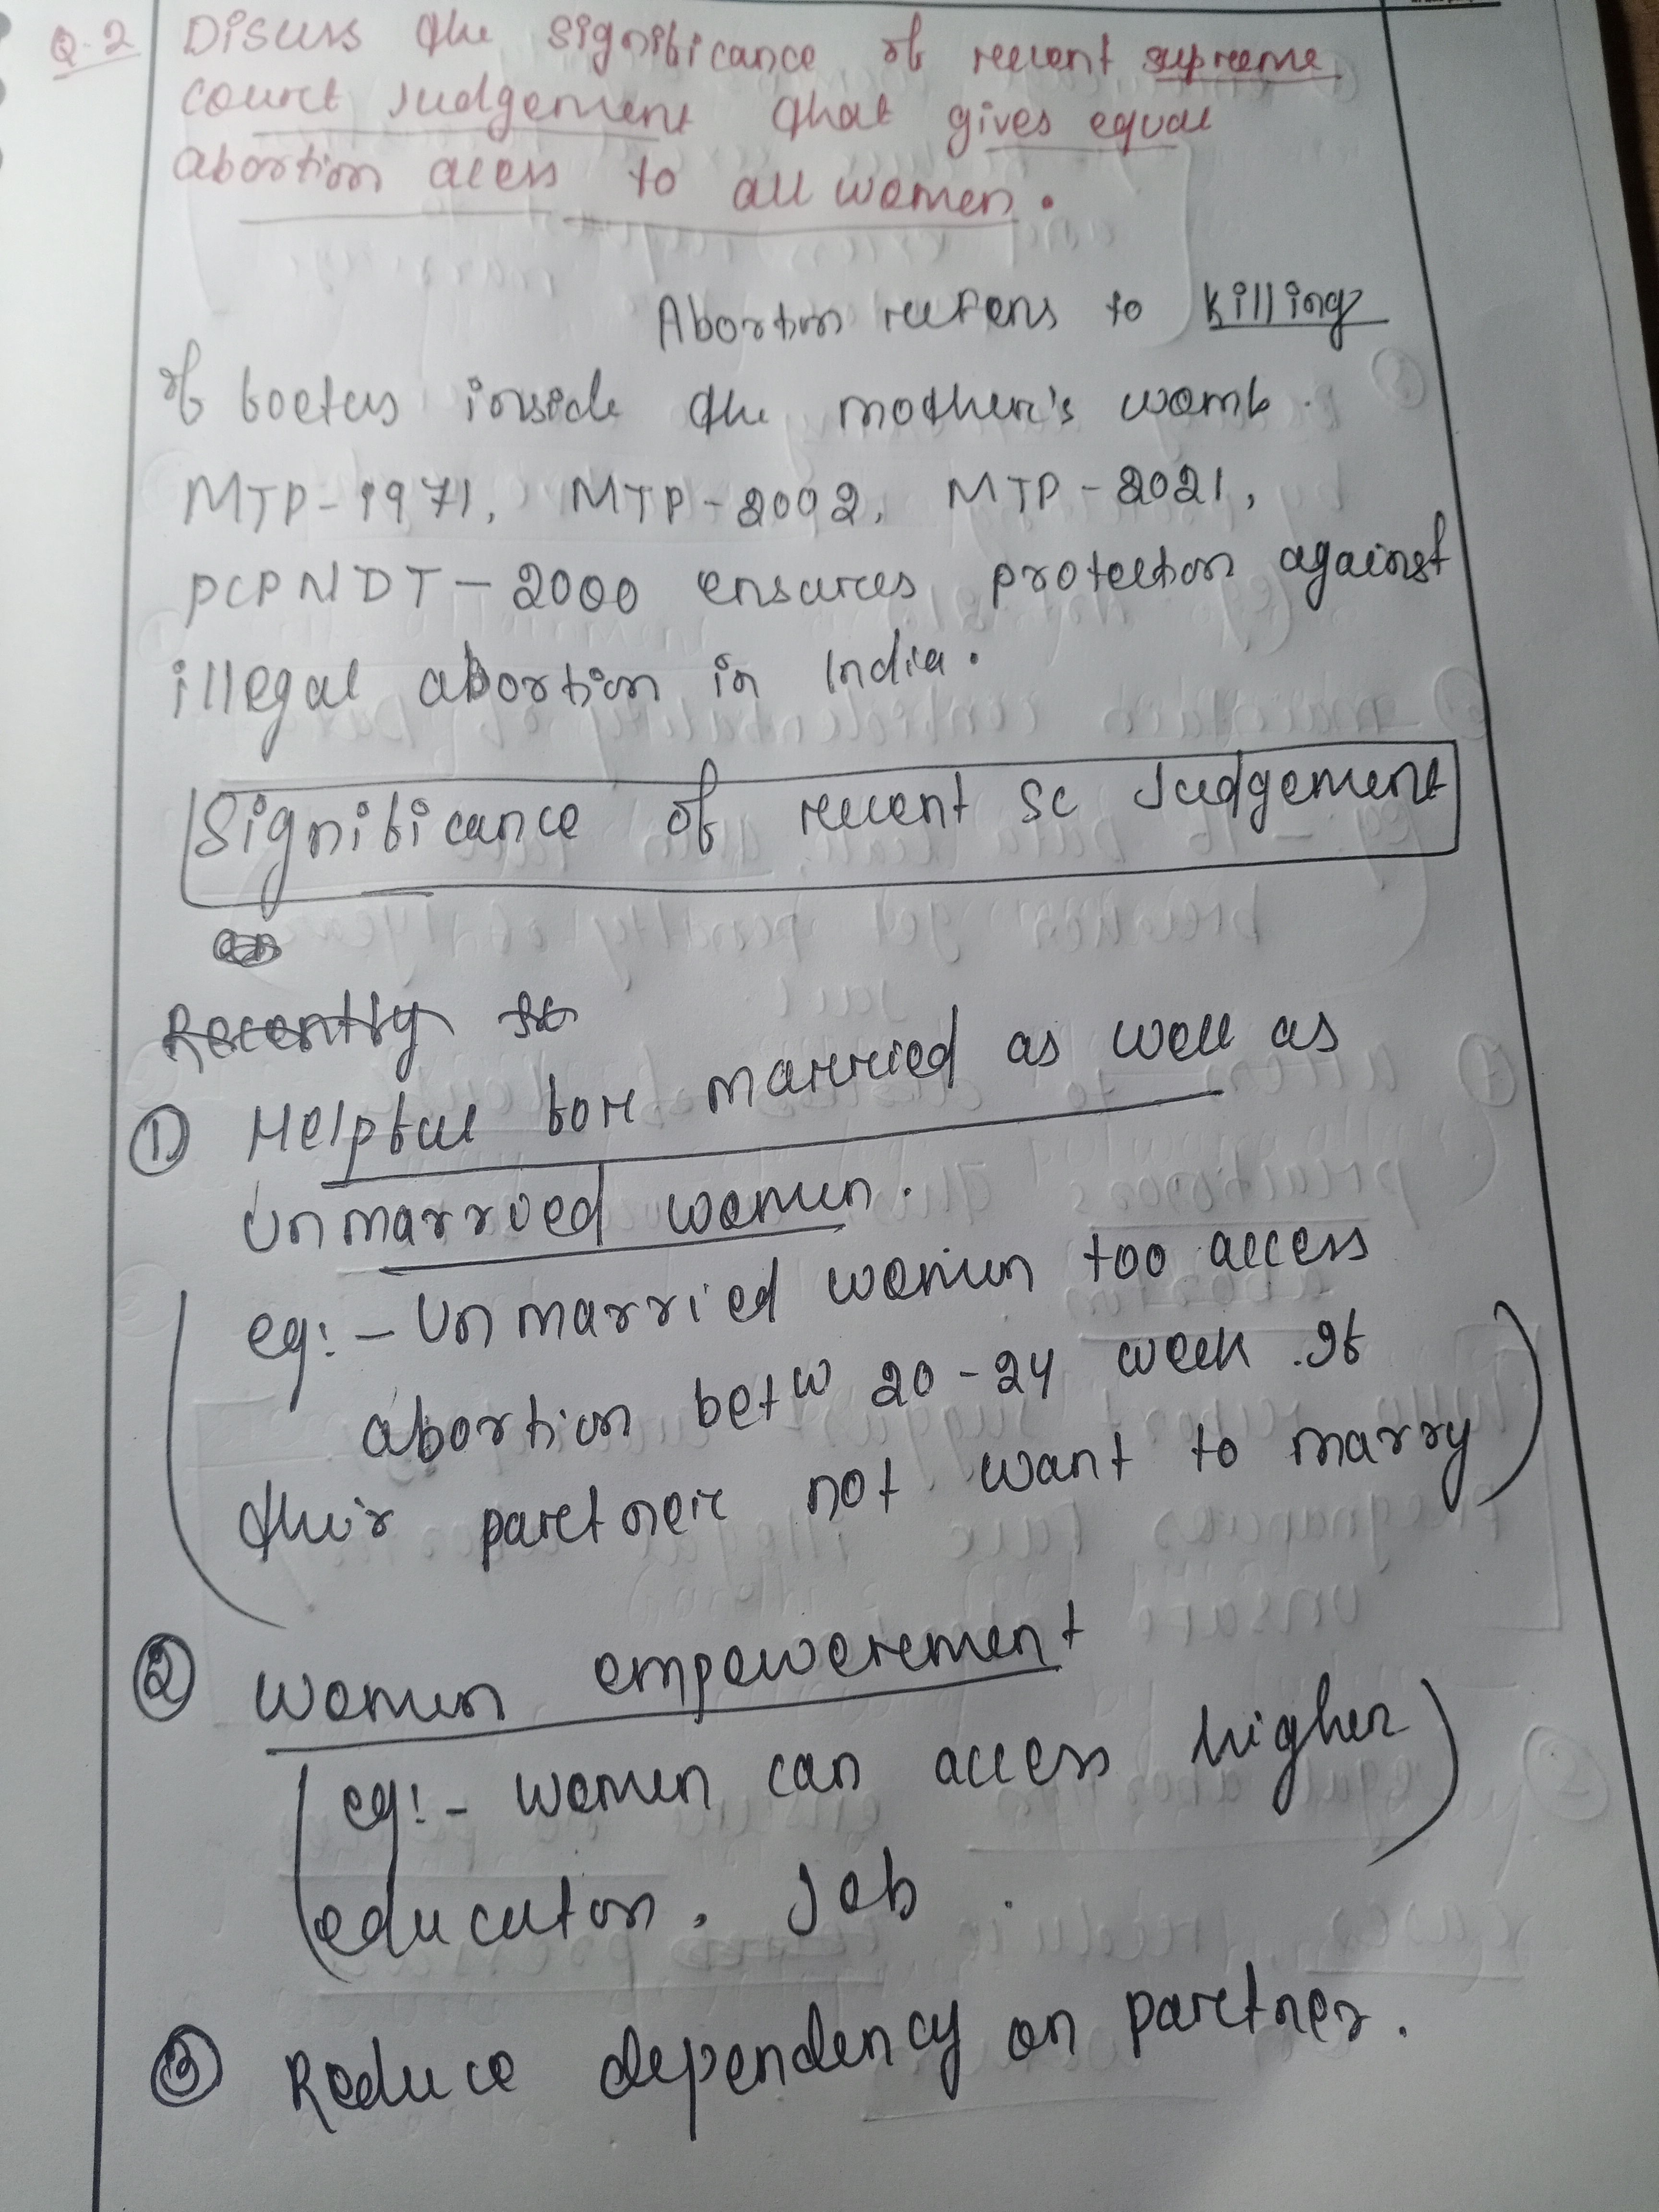 Q.2 Discuss the significance of recent supreme
court Judgement that gives equal
abortion acess to all women.
Abortion refers to killing
of foetus inside the mother's womb.
MTP-1971, MTP-2002, MTP-2021,
PCPNDT-2000 ensures protection against
illegal abortion in India.
Significance of recent SC Judgement
Recently
① Helpful for married as well as
Unmarried women.
eg:- Unmarried women too access
abortion betw 20-24 week. If
their partner not want to marry
② Women empowerement
eg:- women can access higher
education, Job.
③ Reduce dependency on partner.